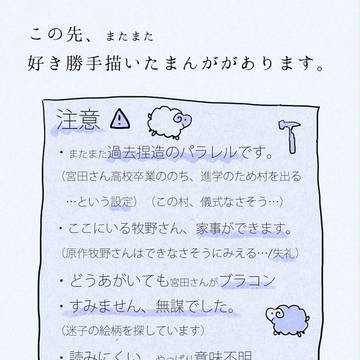 この先、またまた
好き勝手描いたまんががあります。
注意
・またまた過去捏造のパラレルです。
（宮田さん高校卒業ののち、進学のため村を出る
…という設定）（この村、儀式なさそう…）
・ここにいる牧野さん、家事ができます。
（原作牧野さんはできなさそうにみえる…/失礼）
・どうあがいても宮田さんがブラコン
・すみません、無謀でした。
（迷子の絵柄を探しています）
・読みにくい、やっぱり意味不明